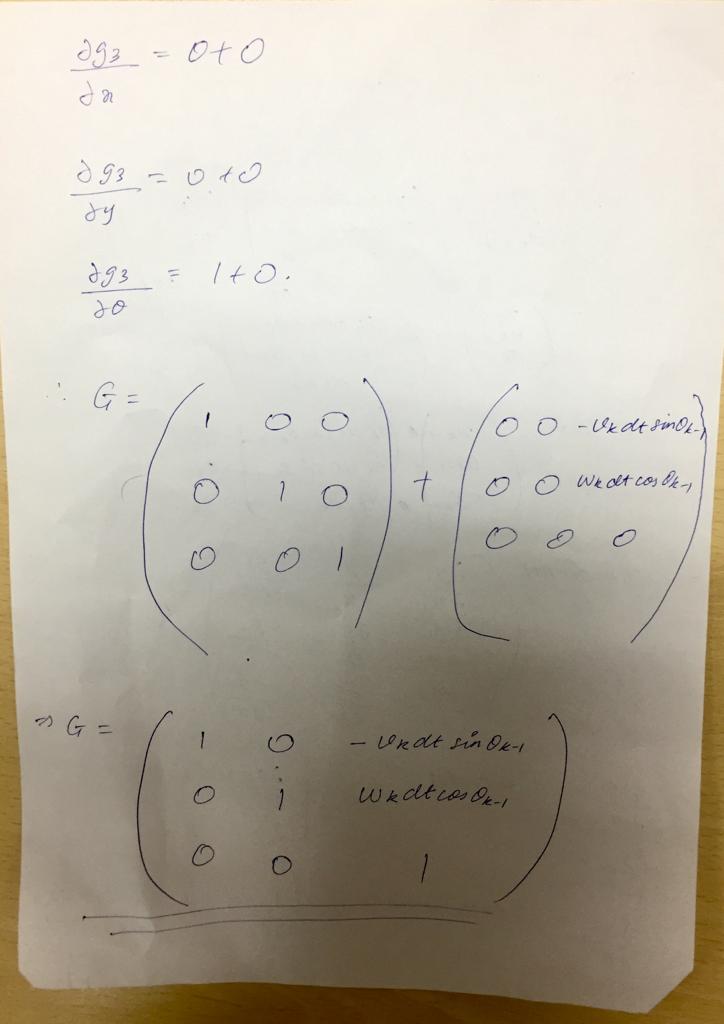 ∂g₃/∂x = 0+0
∂g₃/∂y = 0+0
∂g₃/∂θ = 1+0.
∴ G = ( 1 0 0 ) + ( 0 0 -υₖdt sinθₖ₋₁ )
( 0 1 0 ) ( 0 0 ωₖdt cosθₖ₋₁ )
( 0 0 1 ) ( 0 0 0 )
⇒ G = ( 1 0 -υₖdt sinθₖ₋₁ )
( 0 1 ωₖdt cosθₖ₋₁ )
( 0 0 1 )